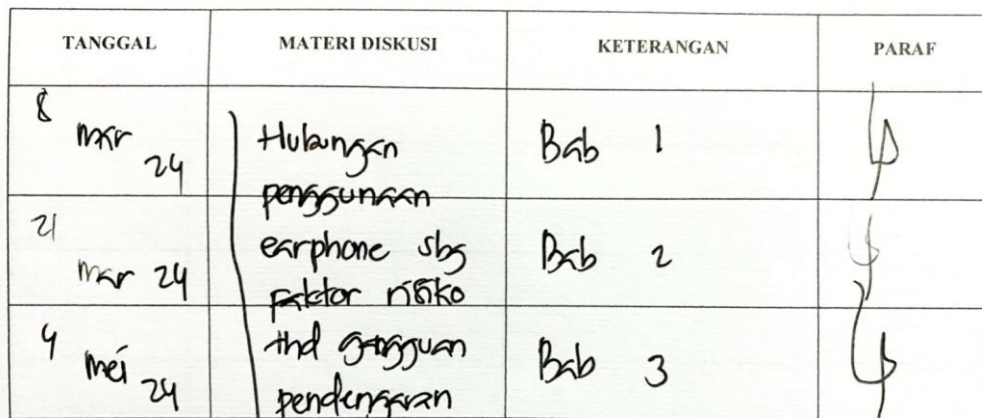 TANGGAL MATERI DISKUSI KETERANGAN PARAF
8 mar 24 Hubungan Bab 1
penggunaan
21 mar 24 earphone sbg Bab 2
faktor risiko
4 mei 24 thd gangguan Bab 3
pendengaran